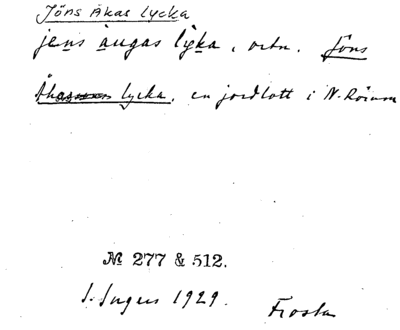 Jöns Åkas lycka
jens åugas lyka, ortn. Jöns
Åkas lycka, en jordlott i N. Rörum
№ 277 & 512.
S. Ingers 1929. Frosta